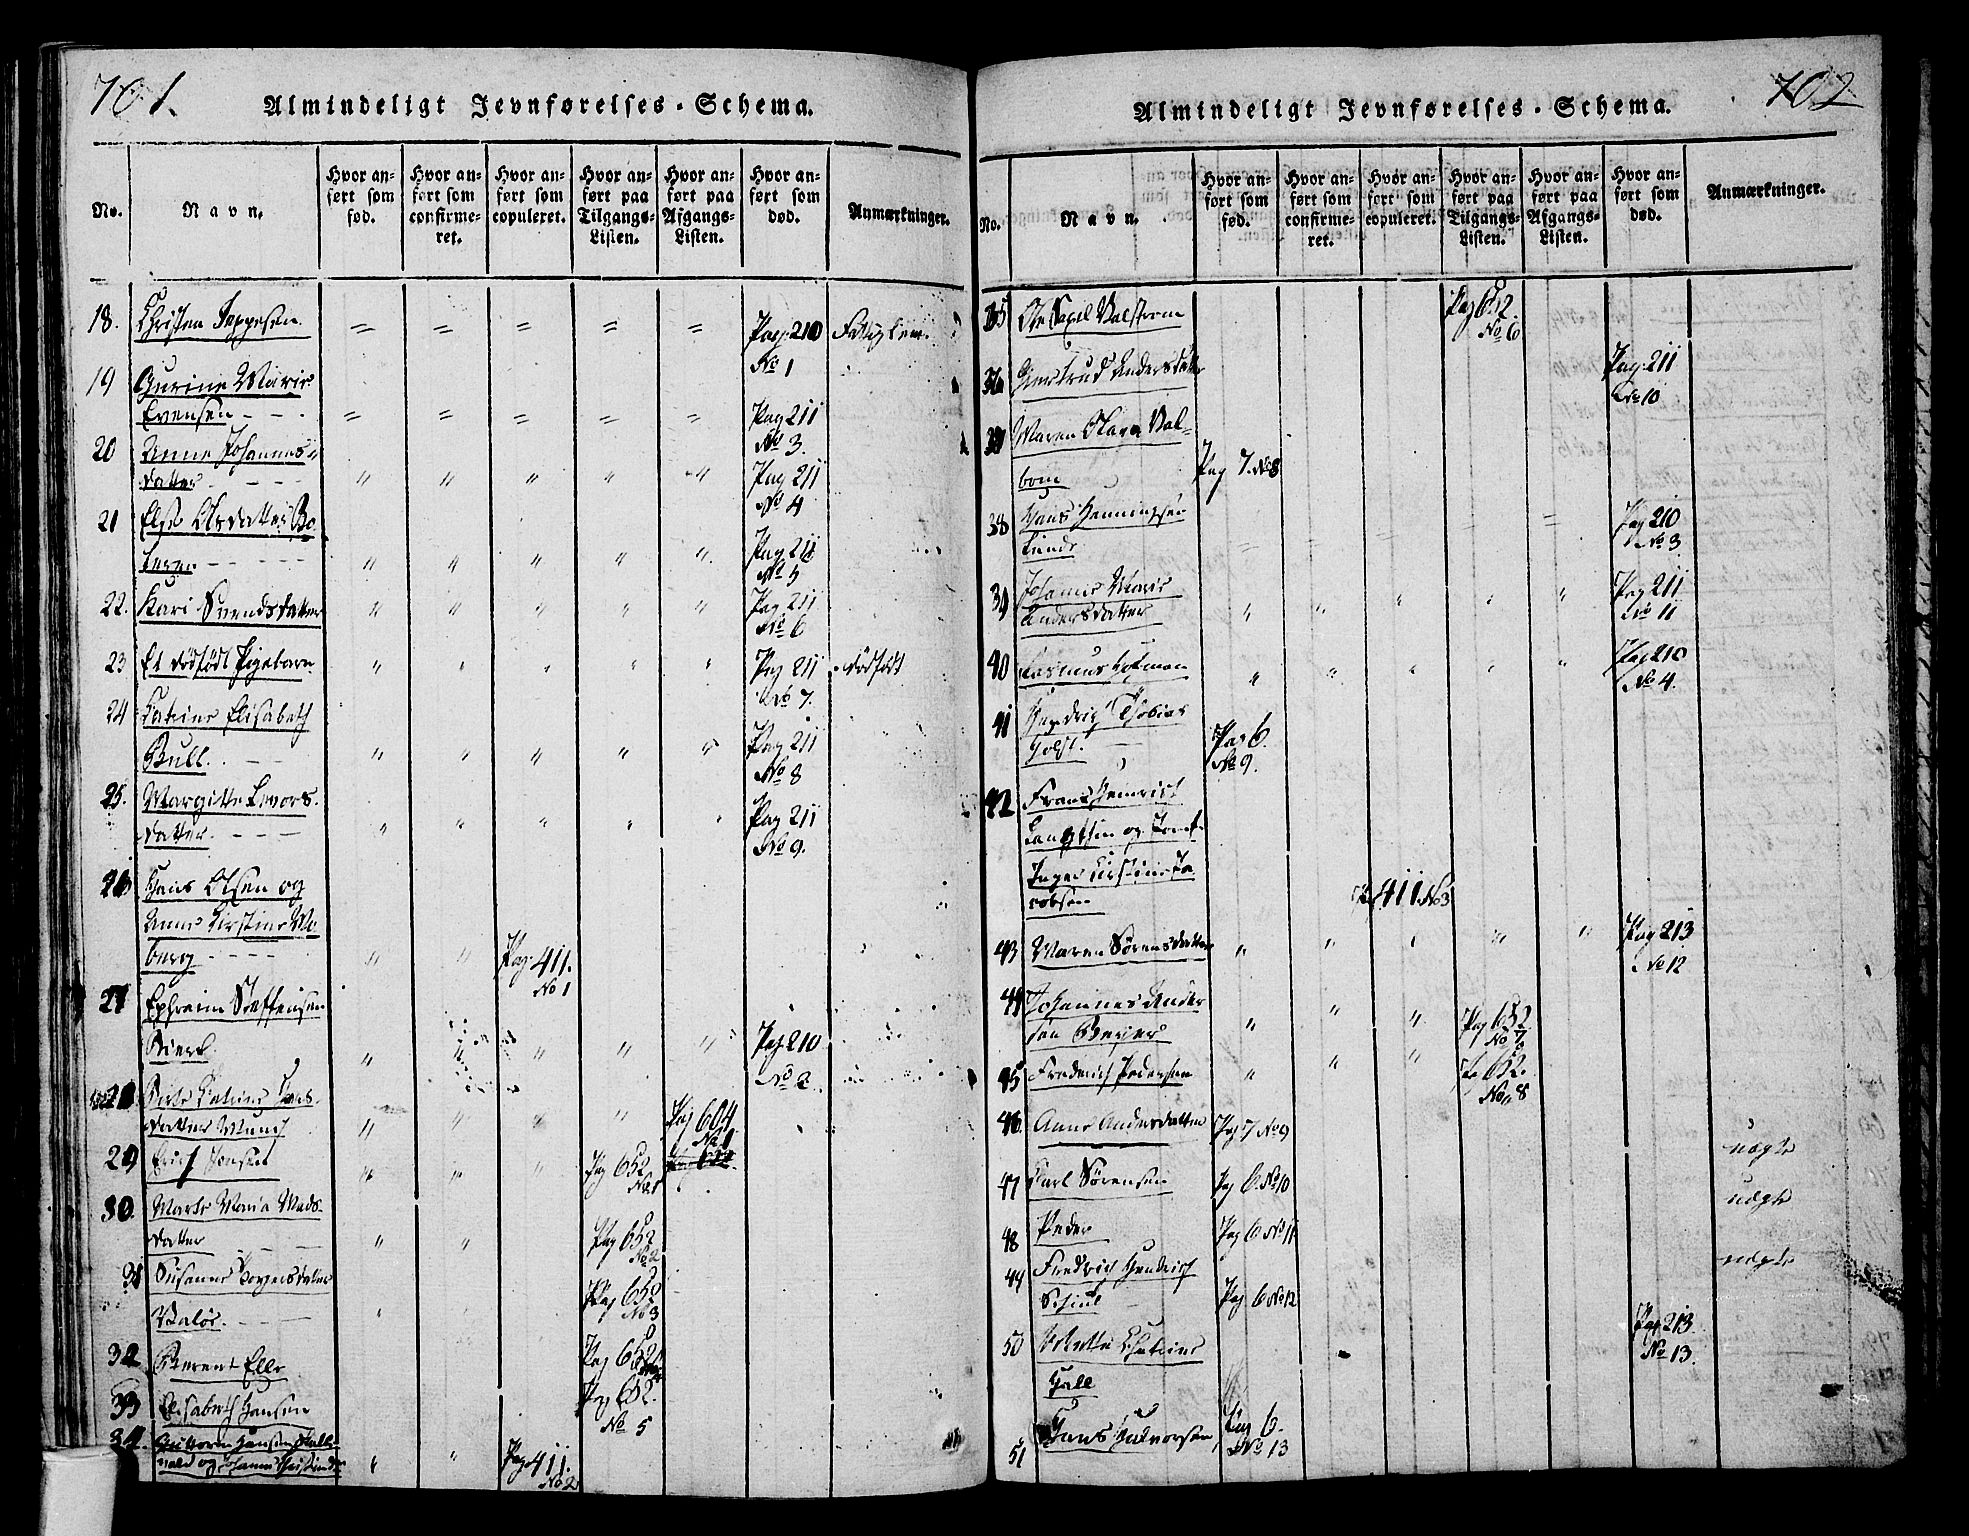 701.
Almindeligt Jevnførelses-Schema.
No.
Navn.
Hvor anført som fød.
Hvor anført som confirmeret.
Hvor anført som copuleret.
Hvor anført paa Tilgangs-Listen.
Hvor anført paa Afgangs-Listen.
Hvor anført som død.
Anmærkninger.
18. Christen Jeppesen. = = = = = Pag. 210 Fattiglem.
No 1
19 Gurine Marie
Evensen - - - = = = = = Pag 211
No 3.
20 Anne Johannes-
datter - - - " " " " " Pag 211
No 4
21 Else Olsdatter Bo
- - - " " " " " Pag 211
No 5
22. Kari Svendsdatter " " " " " Pag 211
No 6
23 Et dødfødt Pigebarn " " " " " Pag 211 dødfødt
No 7.
24 Catrine Elisabeth
Bull. - " " " " " Pag 211
No 8
25. Margitte Levors-
datter. - - - " " " " " Pag 211
No 9.
26 Hans Olsen og
Anne Kirstine Mo
berg - - - " " Pag. 411.
No 1
27 Ephraim Steffensen
" " " " " Pag 210
No 2.
28 Birte Catrine Lars-
datter Munch " " " Pag 604
No 1
29 Erich Jonsen " " " Pag 652
No 1
30. Marte Maria Mads-
datter - - " " Pag 652
No 2
31 Susanne
" Pag 652
No 3
32 Berent Elle Pag 652
33 Elisabeth Hansen Pag 652.
No 5
34. Guttorm Hansen
og Johanne " " Pag 411.
No 2
702
Almindeligt Jevnførelses-Schema.
No.
Navn.
Hvor anført som fød.
Hvor anført som confirmeret.
Hvor anført som copuleret.
Hvor anført paa Tilgangs-Listen.
Hvor anført paa Afgangs-Listen.
Hvor anført som død.
Anmærkninger.
35 Ole Pag 652.
No 6
36 Giertrud Andersdatter Pag. 211
No 10
37 Maren Olava Wal-
bom Pag 7. No 8
38 Hans Henningsen
Lunde = = = = = Pag 210
No 3
39 Johanne Marie
Andersdatter " " " " " Pag 211
No 11
40 Rasmus Hofman " " " " " Pag 210
No 4.
41 Hendrich Thobias
Holst. - Pag 6.
No 9.
42 Frans Henrich
og Jomf.
Inger Kirstine Ja
cobsen Pag 411 No 3
43 Maren Sørensdatter " " " " " Pag 213
No 12
44 Johannes Ander
sen " " " Pag 652
No 7
45 Frederich Pedersen " " " Pag 652.
No 8
46. Anne Andersdatter Pag 7 No 9 uægte
47 Carl Sørensen Pag 6. No 10 uægte
48 Peder Pag 6. No 11 uægte
49 Fredrich Hendrich
Pag 6 No 12
50 Mette Cathrine
Hall Pag 213
No 13.
51 Hans Halvorsen Pag 6.
No 13